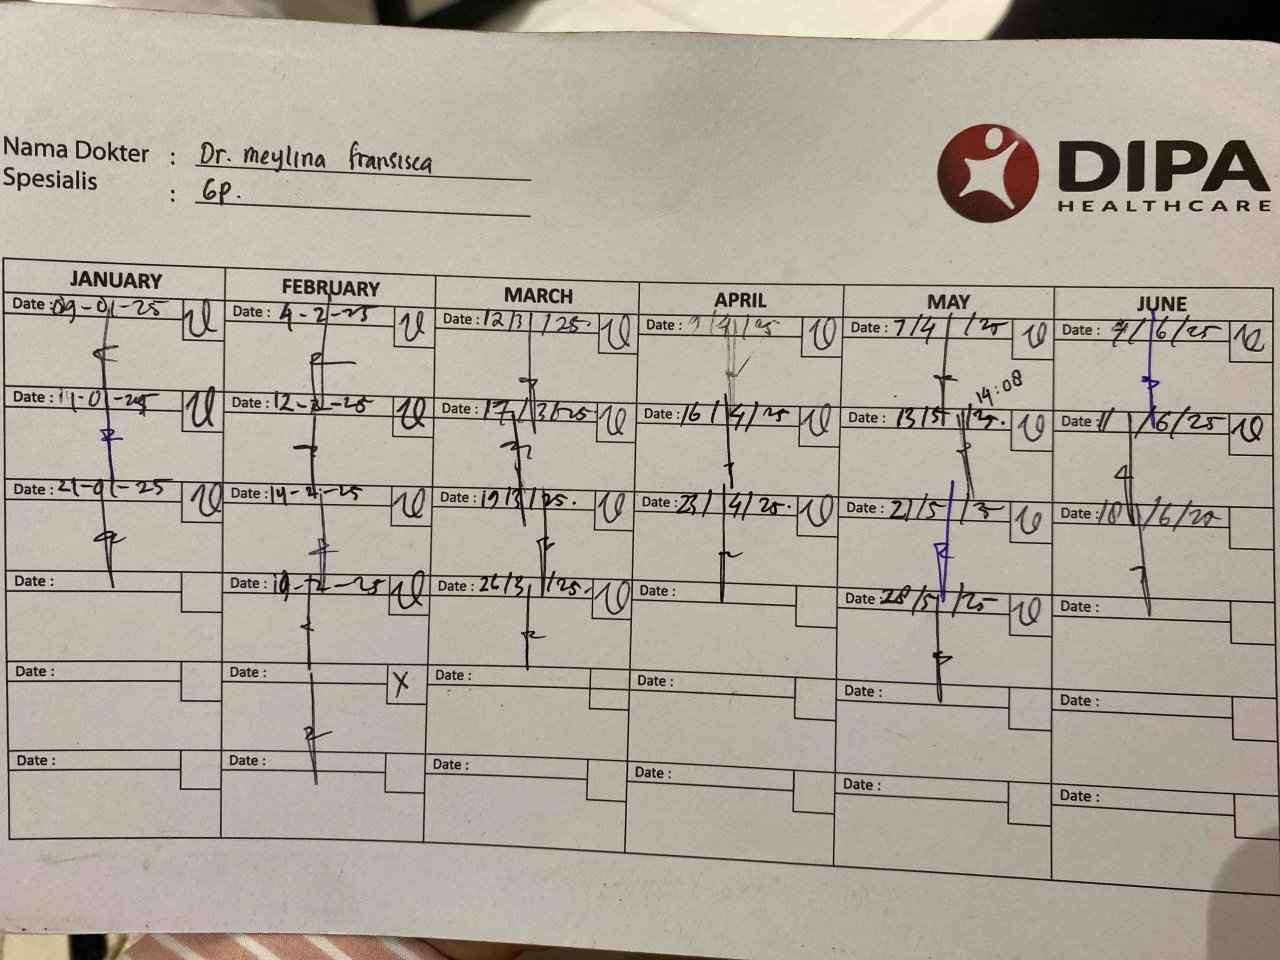 Nama Dokter : Dr. Meylina Fransisca
Spesialis : GP.
DIPA
HEALTHCARE
JANUARY FEBRUARY MARCH APRIL MAY JUNE
Date : 09-01-25 Date : 4-2-25 Date : 12/3/25. Date : 9/4/25 Date : 7/4/25 Date : 4/6/25
14:08
Date : -01- Date : 12-2-25 Date : 17/3/25 Date : 16/4/25 Date : 13/5/25. Date : 11/6/25
Date : 21-01-25 Date : 14-2-25 Date : 19/3/25. Date : 23/4/25. Date : 21/5/25 Date : 18/6/25
Date : Date : 19-2-25 Date : 26/3/25. Date : Date : 28/5/25 Date :
Date : Date : X Date : Date : Date : Date :
Date : Date : Date : Date : Date : Date :